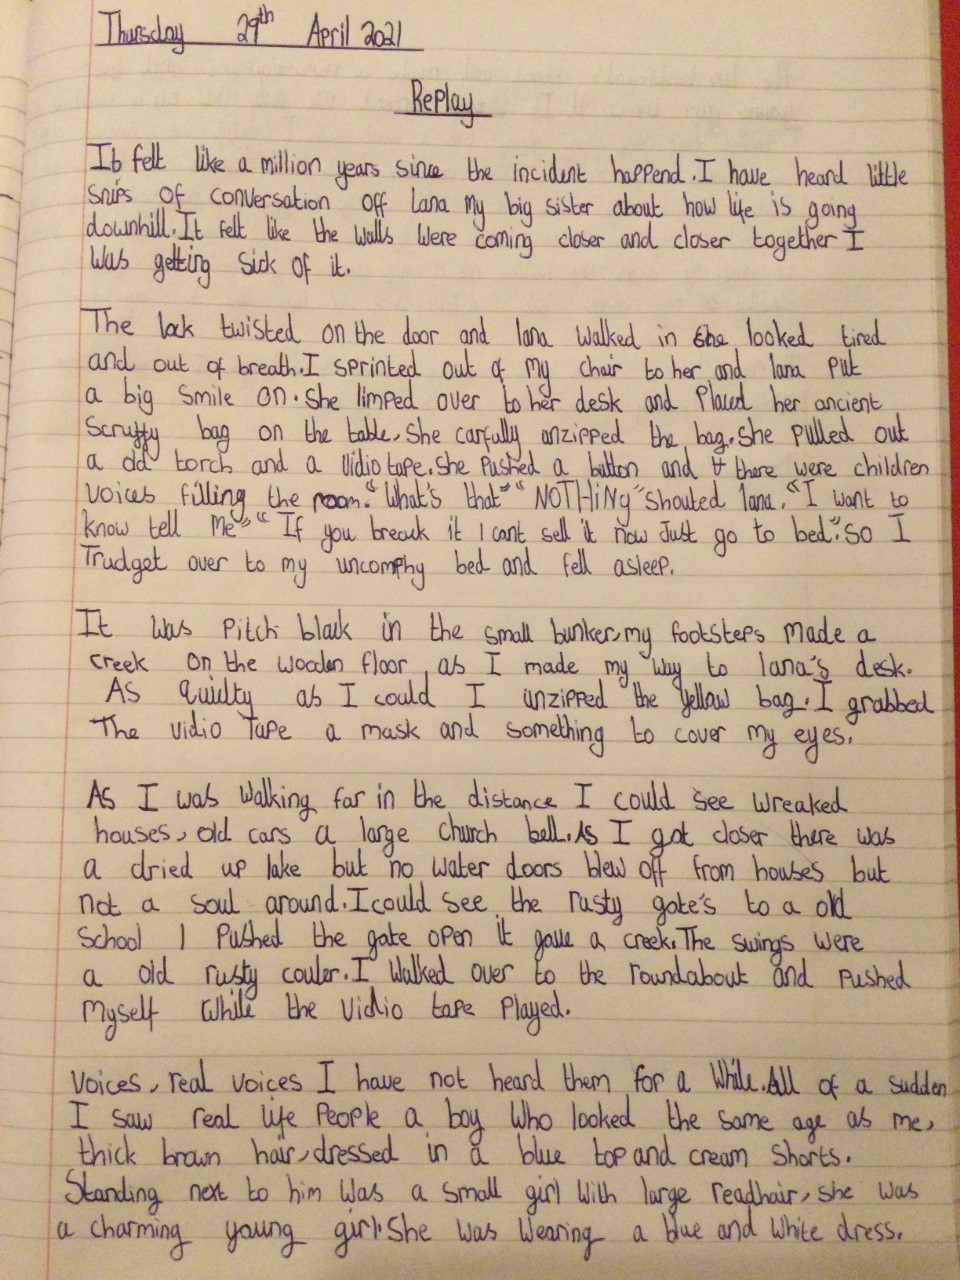 Thursday 29th April 2021
Replay
It felt like a million years since the incident happend. I have heard little
snips of conversation off Lana my big sister about how life is going
downhill. It felt like the walls were coming closer and closer together I
was getting sick of it.
The lock twisted on the door and lana walked in she looked tired
and out of breath. I sprinted out of my chair to her and lana put
a big smile on. She limped over to her desk and placed her ancient
scruffy bag on the table, she carfully unzipped the bag. She pulled out
a old torch and a vidio tape. She pushed a button and there were children
voices filling the room. "What's that" "NOTHiNg" shouted lana, "I want to
know tell me" "If you break it I cant sell it now just go to bed." So I
Trudget over to my uncomphy bed and fell asleep.
It was pitch black in the small bunker, my footsteps made a
creek on the wooden floor as I made my way to lana's desk.
As quielty as I could I unzipped the yellow bag. I grabbed
The vidio Tape a mask and something to cover my eyes.
As I was walking far in the distance I could see wreaked
houses, old cars a large church bell. As I got closer there was
a dried up lake but no water doors blew off from houses but
not a soul around. I could see the rusty gate's to a old
school I pushed the gate open it gave a creek. The swings were
a old rusty couler. I walked over to the roundabout and pushed
myself while the vidio tape played.
Voices, real voices I have not heard them for a while. All of a sudden
I saw real life people a boy who looked the same age as me,
thick brown hair, dressed in a blue top and cream shorts.
Standing next to him was a small girl with large readhair, she was
a charming young girl. She was wearing a blue and white dress.